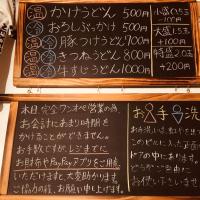 温 かけうどん 500円
冷 おろしぶっかけ 500円
冷 豚つけうどん 700円
温 きつねうどん 800円
温 牛すじうどん 1000円
小盛0.5玉
-100円
大盛1.5玉
+100円
特盛2.0玉
+200円
本日 完全ワンオペ営業の為
お会計にあまり時間を
かけることができません。
お手数ですが、レジまでに
お財布やPayPayアプリをご用意
いただけますと、大変助かります。
ご協力の程、お願い申し上げます。
お手洗
お手洗いは、
このビルに入り正面
ドアの中にあります。